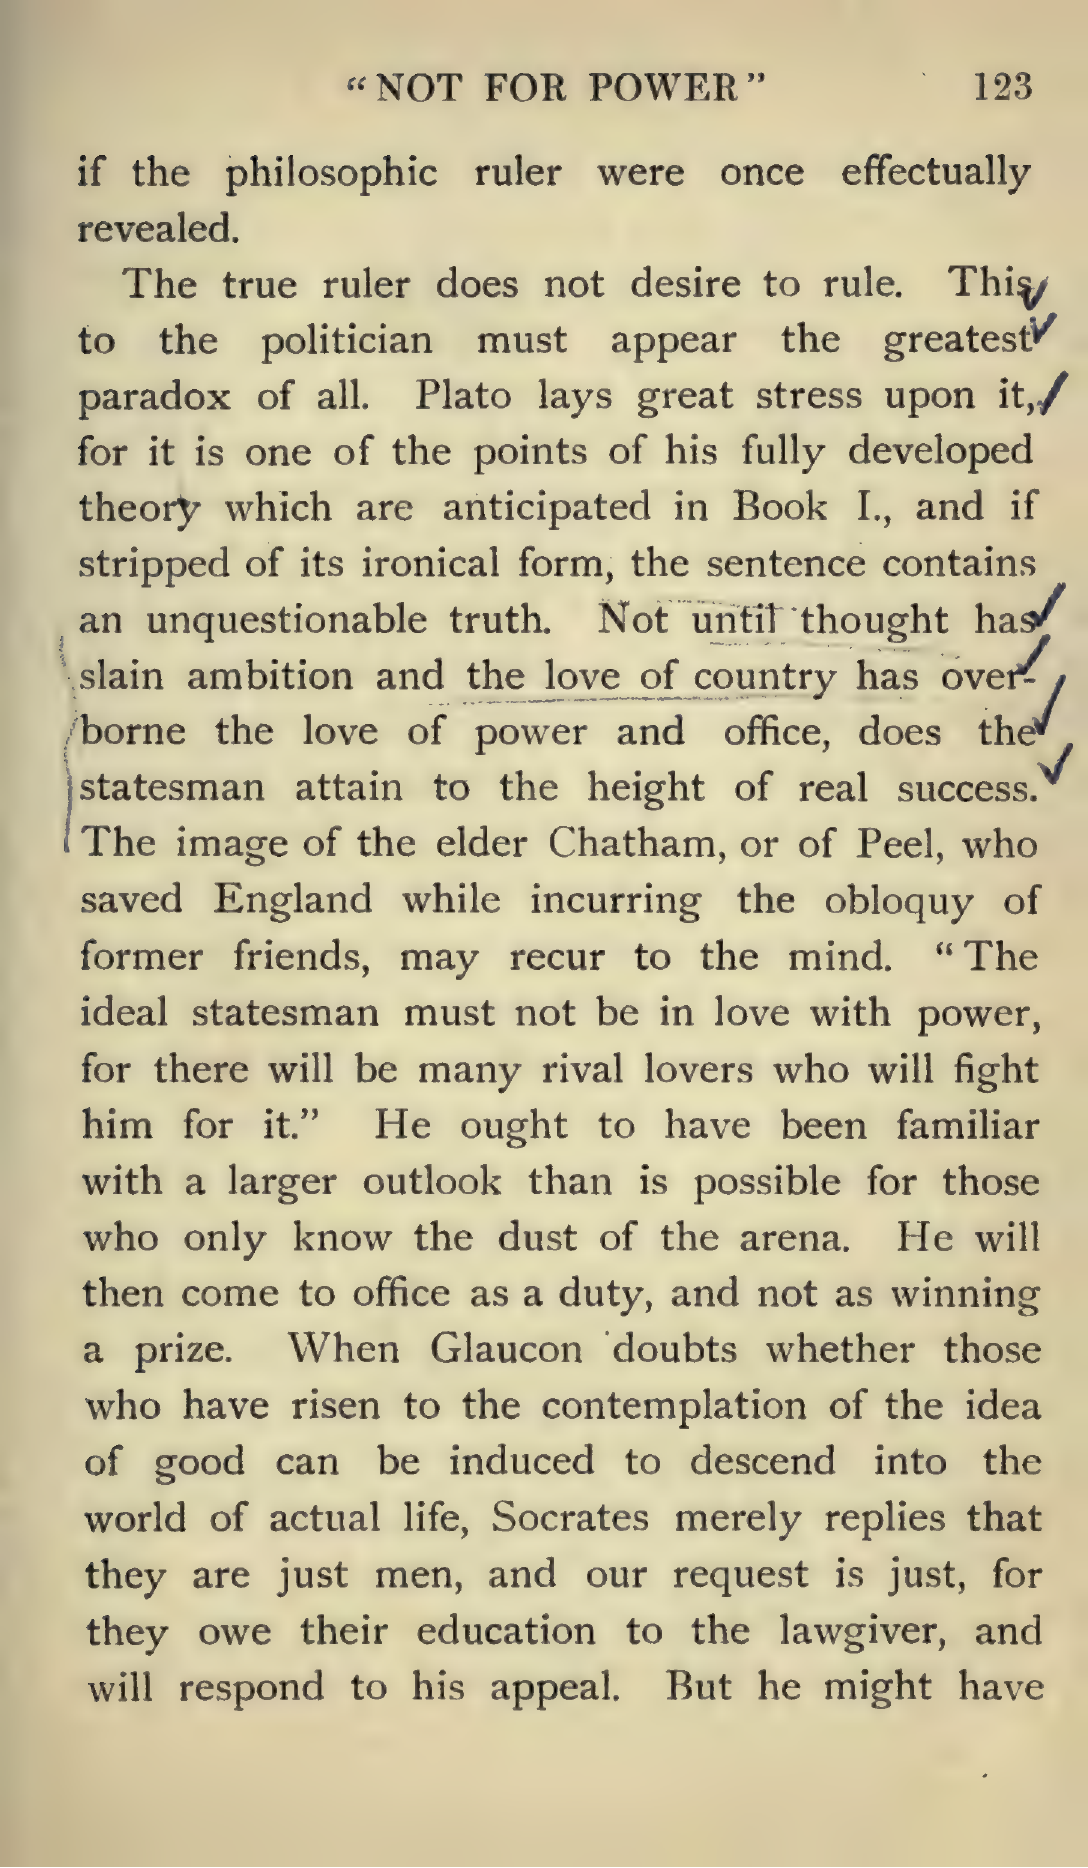 "NOT FOR POWER" 123
if the philosophic ruler were once effectually
revealed.
The true ruler does not desire to rule. This
to the politician must appear the greatest
paradox of all. Plato lays great stress upon it,
for it is one of the points of his fully developed
theory which are anticipated in Book I., and if
stripped of its ironical form, the sentence contains
an unquestionable truth. Not until thought has
slain ambition and the love of country has over-
borne the love of power and office, does the
statesman attain to the height of real success.
The image of the elder Chatham, or of Peel, who
saved England while incurring the obloquy of
former friends, may recur to the mind. "The
ideal statesman must not be in love with power,
for there will be many rival lovers who will fight
him for it." He ought to have been familiar
with a larger outlook than is possible for those
who only know the dust of the arena. He will
then come to office as a duty, and not as winning
a prize. When Glaucon doubts whether those
who have risen to the contemplation of the idea
of good can be induced to descend into the
world of actual life, Socrates merely replies that
they are just men, and our request is just, for
they owe their education to the lawgiver, and
will respond to his appeal. But he might have